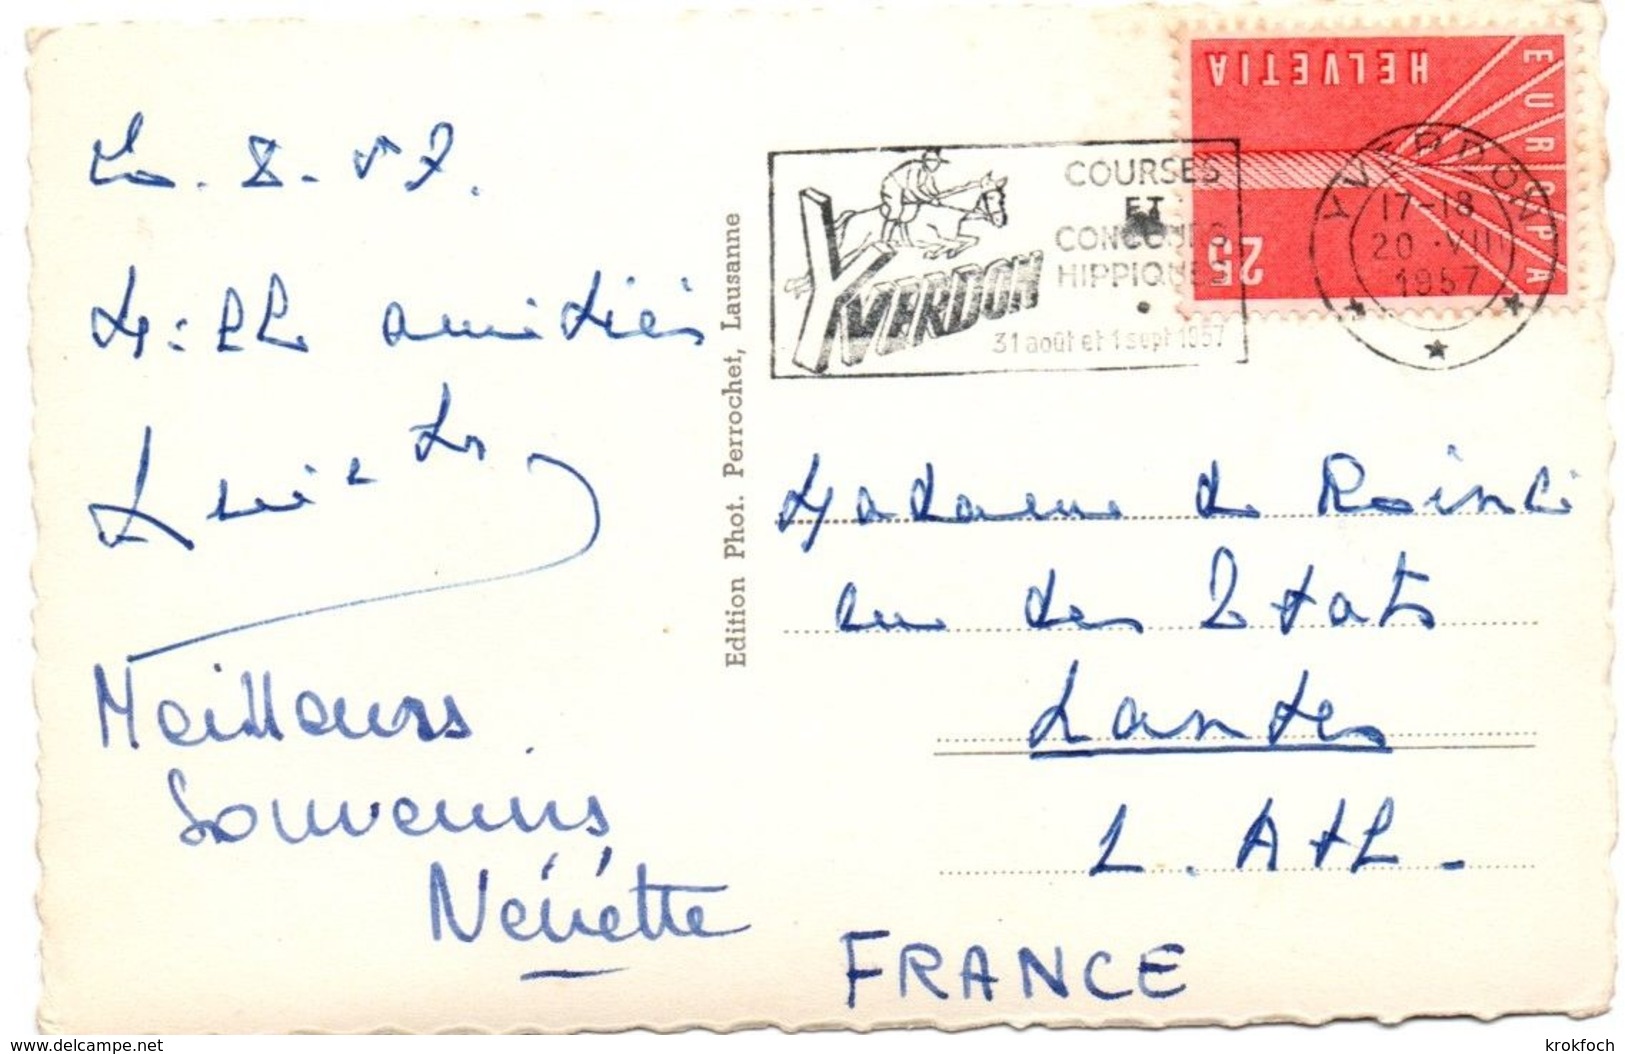 8-57.
amitiés
Meilleurs
Souvenirs
Nénette
Edition Phot. Perrochet, Lausanne
YVERDON
COURSES
ET
CONCOURS
HIPPIQUES
31 août et 1 sept 1957
HELVETIA
EUROPA
25
YVERDON
17-18
20.VIII
1957
Madame de
rue des Etats
Nantes
L. Atl.
FRANCE
www.delcampe.net
krokfoch